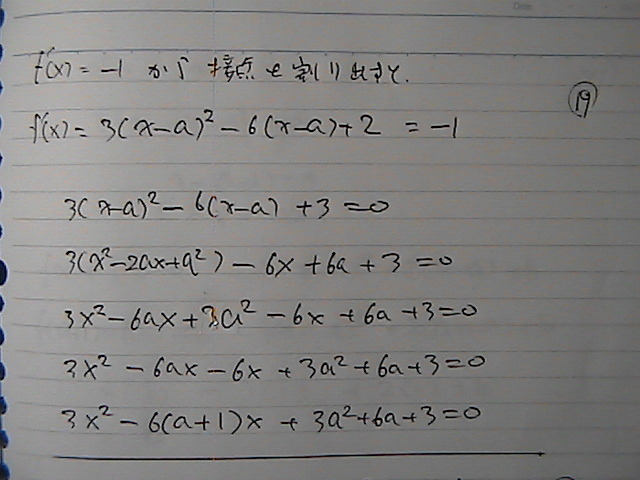 f'(x) = -1 から 接点を割り出すと.
⑲
f'(x) = 3(x-a)² - 6(x-a) + 2 = -1
3(x-a)² - 6(x-a) + 3 = 0
3(x²-2ax+a²) - 6x + 6a + 3 = 0
3x² - 6ax + 3a² - 6x + 6a + 3 = 0
3x² - 6ax - 6x + 3a² + 6a + 3 = 0
3x² - 6(a+1)x + 3a² + 6a + 3 = 0